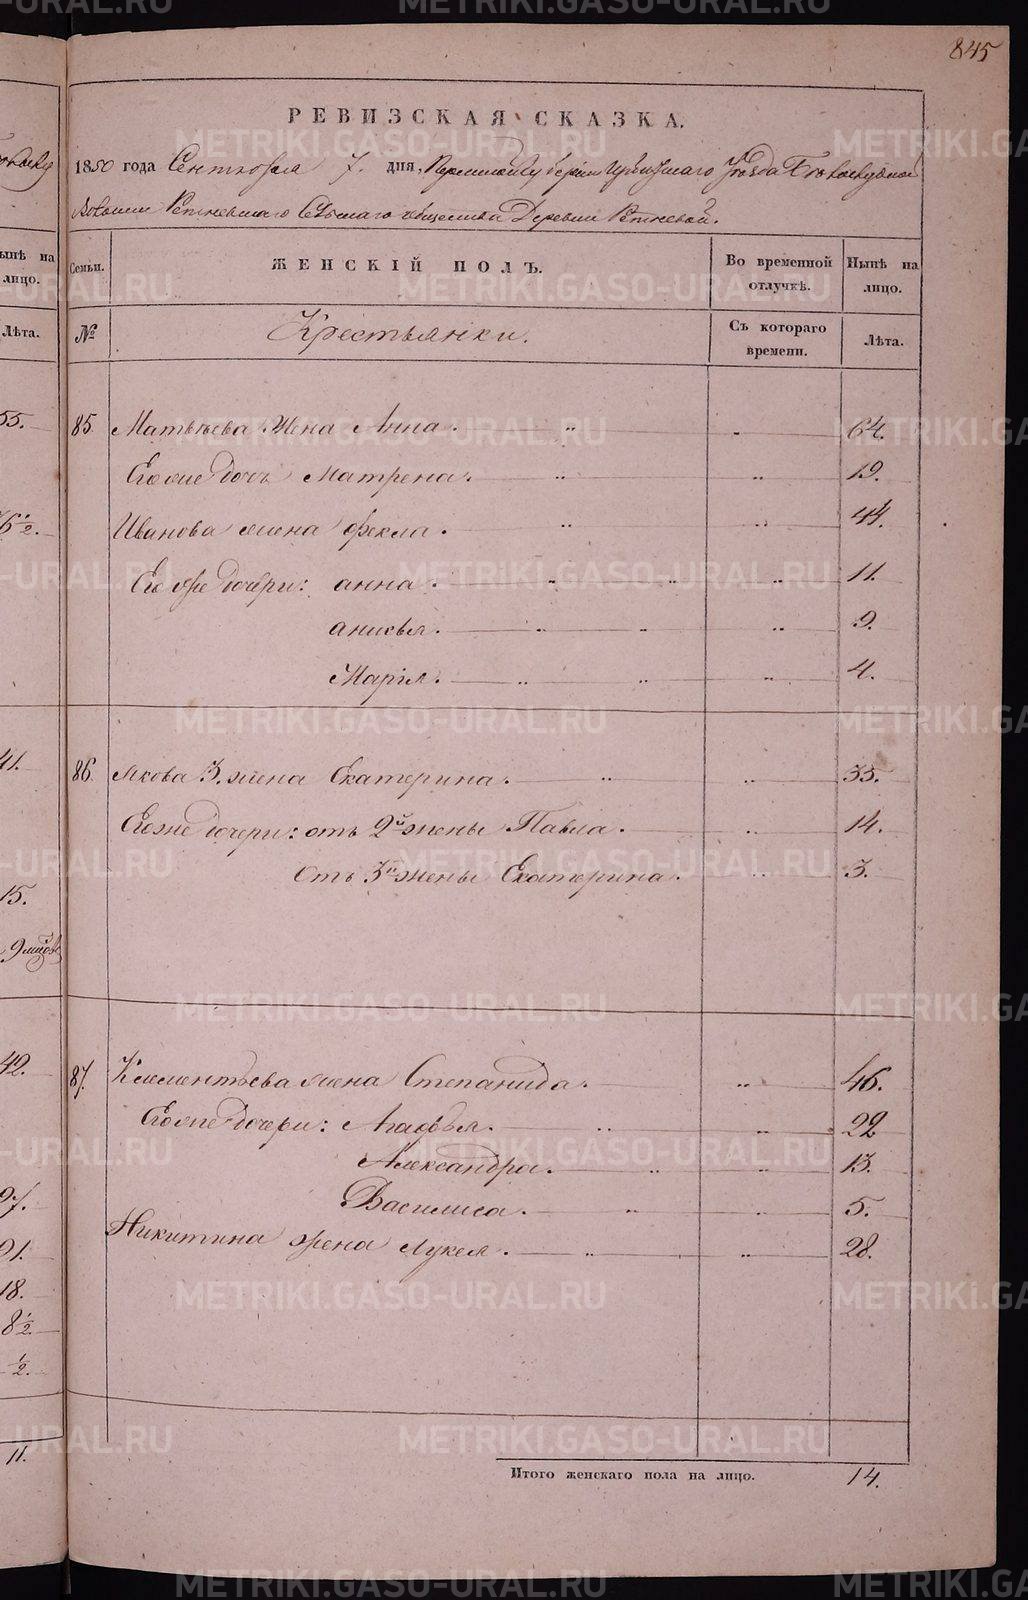 845
РЕВИЗСКАЯ СКАЗКА.
1850 года Сентября 7. дня, Пермской губернии Ирбитскаго Уезда
Волости Ретневскаго Сельскаго общества Деревни Ретневой.
Семьи.
ЖЕНСКІЙ ПОЛЪ.
Во временной отлучкѣ.
Нынѣ на лицо.
№
Крестьянки.
Съ котораго времени.
Лѣта.
85. Матвѣева жена Анна. 64.
Его же дочь Матрена. 19.
Иванова жена Фекла. 44.
Его же дочери: Анна. 11.
Анисья. 9.
Марія. 4.
86. Якова 3. жена Екатерина. 35.
Его же дочери: отъ 2й жены Павла. 14.
Отъ 3й жены Екатерина. 3.
87. Клементьева жена Степанида. 46.
Его же дочери: Агафья. 22
Александра. 13.
Василиса. 5.
Никитина жена Лукея. 28.
Итого женскаго пола на лицо. 14.
нынѣ на
лицо.
Лѣта.
55.
6½.
41.
15.
9 мѣсяцовъ
42.
27.
21.
18.
8½
½.
11.
METRIKI.GASO-URAL.RU